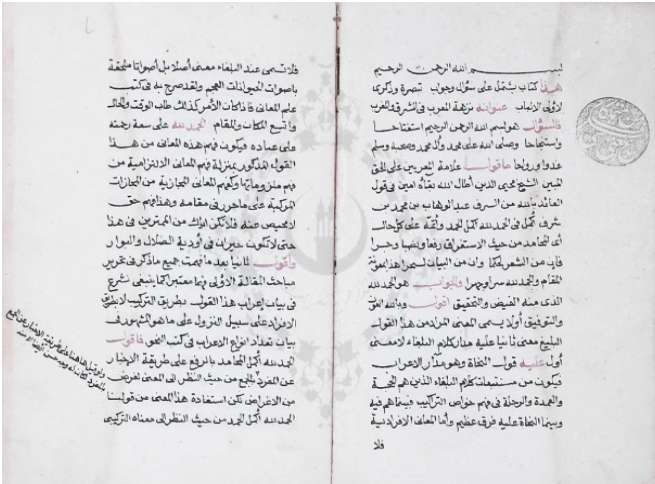 بسم الله الرحمن الرحيم
هذا كتاب يشتمل على سؤال وجواب تبصرة وذكرى
لأولى الالباب عنوانه نزهة المعرب في المشرق والمغرب
فالسؤال هو بسم الله الرحمن الرحيم استفتاحا
واستنجاحا وصلى الله على محمد وآل محمد وصحبه وسلم
غدوا ورواحا ما قول علامة المعربين على الحق
المبين الشيخ محيي الدين أطال الله بقاءه امين في قول
العائذ بالله من السرف عبد الوهاب بن محمد بن
شرف أكمل في الحمد لله أكمل الحمد وأتمه على كل حال
أى المحامد من حيث الاستغراق رفعا ونصبا وجرا
فإن من الشعر لحكما وان من البيان لسحرا هذا بعون
المقام والحمد لله سرا وجهرا والجواب هو الحمد لله
الذى منه الفيض والتحقيق أقول وبالله العون
والتوفيق أولا يسمى المعنى المراد من هذا القول
البليغ معنى ثانيا عليه مدار كلام البلغاء لا معنى
أول عليه قول النحاة وهو مدار الاعراب
فيكون من مستتبعات كلام البلغاء الذين هم الحجة
والعمدة والرحلة في فهم خواص التراكيب فبينما هم فيه
وبينما النحاة عليه فرق عظيم وأما المعانى الافرادية
فلا
فلا تسمى عند البلغاء معنى أصلا بل أصواتا ملحقة
باصوات الحيوانات العجم ولقد صرح به في كتب
علم المعانى فاذا كان الأمر كذلك طاب الوقت والحال
واتسع المكان والمقام الحمد لله على سعة رحمته
على عباده فيكون فهم هذه المعانى من هذا
القول المذكور بمنزلة فهم المعانى الالتزامية من
فهم ملزوماتها وكفهم المعانى المجازية من المجازات
المركبة على ما حرر في مقامه وهذا فهم حق
لا محيص عنه فلا تكن انت من الممترين في هذا
حتى لا تكون حيران في أودية الضلال والبوار
وأقول ثانيا بعد ما فهمت جميع ما ذكر في تحرير
مباحث المقالة الأولى فهما معتبرا كما ينبغى نشرع
في بيان إعراب هذا القول بطريق التركيب لا بطريق
الافراد على سبيل النزول على ما هو المشهور في
بيان تعداد انواع الاعراب في كتب النحو فأقول
الحمد لله أكمل المحامد بالرفع على طريقة الاخبار
عن المفرد بالجمع من حيث النظر الى المعنى لغرض
من الاغراض تكن استفادة هذا المعنى من قولنا
الحمد لله أكمل الحمد من حيث النظر الى معناه التركيبى